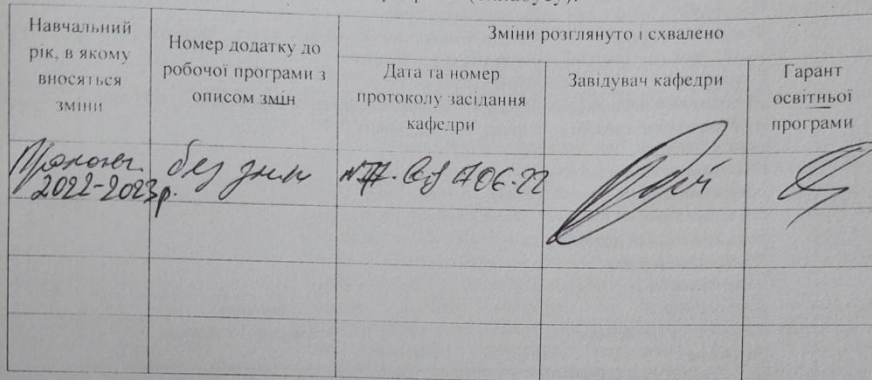 Навчальний
рік, в якому
вносяться
зміни
Номер додатку до
робочої програми з
описом змін
Зміни розглянуто і схвалено
Дата та номер
протоколу засідання
кафедри
Завідувач кафедри
Гарант
освітньої
програми
2022-2023р.
без змін
06.22